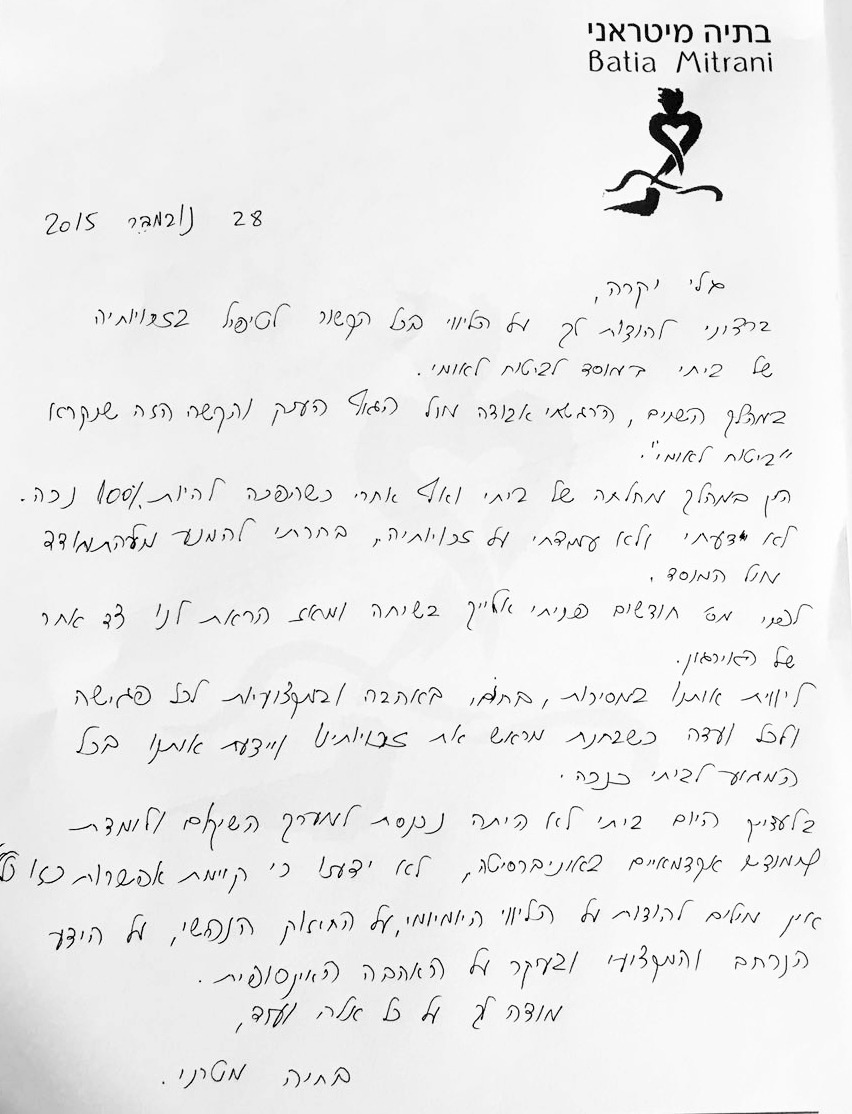 בתיה מיטראני
Batia Mitrani
28 נובמבר 2015
גלי יקרה,
ברצוני להודות לך על הליווי בכל הקשור לטיפול בזכויותיה
של ביתי במוסד לביטוח לאומי.
במהלך השנים, הרגשתי אבודה מול הגוף הענק והקשה הזה שנקרא
"ביטוח לאומי".
הן במהלך מחלתה של ביתי ואף אחרי כשהפכה להיות 100% נכה.
לא ידעתי ולא עמדתי על זכויותיה, בחרתי להמנע מלהתמודד
מול המוסד.
לפני מס' חודשים פניתי אלייך בשיחה ומאז הראת לנו צד אחר
של האירגון.
ליווית אותנו במסירות, בחום, באהבה ובמקצועיות לכל פגישה
ולכל ועדה כשבחנת מראש את זכויותינו ויידעת אותנו בכל
המגיע לביתי כנכה.
בלעדיך היום ביתי לא היתה נכנסת למערך השיקום ולומדת
לימודים אקדמאיים באוניברסיטה, לא ידענו כי קיימת אפשרות כזו
אין מילים להודות על הליווי היומיומי, על החיזוק הנפשי, על הידע
הנרחב והמקצועי ובעיקר על האהבה האינסופית.
מודה לך על כל אלה ועוד,
בתיה מטרני.